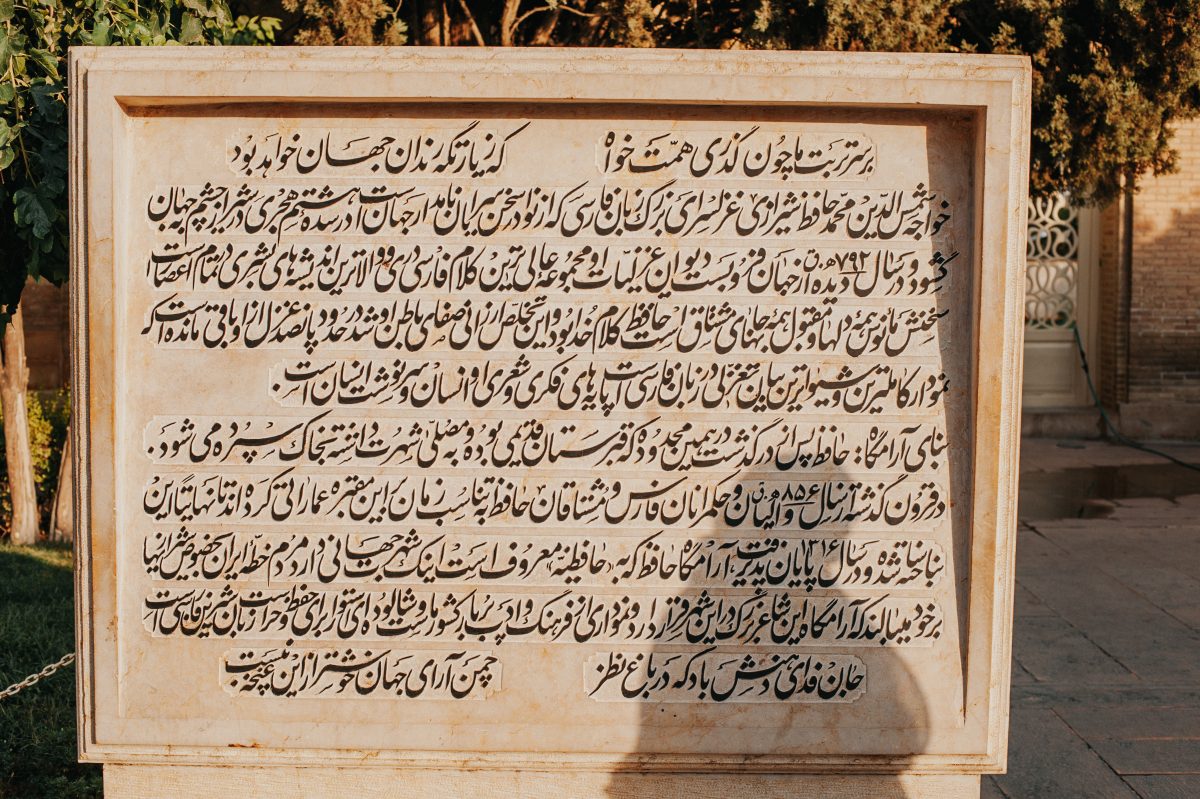 بر سر تربت ما چون گذری همت خواه که زیارتگه رندان جهان خواهد بود
خواجه شمس الدین محمد حافظ شیرازی غزلسرای بزرگ زبان فارسی که از نوادر سخن سرایان نامدار جهان است در سده هشتم هجری در شیراز چشم به جهان
گشود و در سال ۷۹۲ ه.ق دیده از جهان فرو بست دیوان غزلیات او مجموعه عالی ترین کلام فارسی دری و والاترین اندیشه های بشری در تمام اعصار است
سخنش مأنوس همه دلها و مقبول همه جانهای مشتاق است حافظ کلام خدا بود و این تخلص ارزانی صفای باطن او شد حدود پانصد غزل از او باقی مانده است که
نمودار کاملترین و شیواترین بیان تغزلی در زبان فارسی است پایه های فکری و شعری او انسان و سرنوشت انسان است.
بنای آرامگاه: حافظ پس از درگذشت در همین محدوده که قبرستان قدیمی بوده و به مصلی شهرت داشته بخاک سپرده می شود.
در قرون گذشته از سال ۸۵۶ ه.ق والیان و حکمرانان فارس و مشتاقان حافظ به تناسب زمان بر این مقبره عماراتی کرده اند تا نهایتا این
بنا ساخته شده و در سال ۱۳۱۶ پایان پذیرفت، آرامگاه حافظ که به «حافظیه» معروف است اینک شهرت جهانی دارد مردم خطه ایران بخصوص شیرازیها
بر خود میبالند که آرامگاه این شاعر بزرگ در این شهر قرار دارد و نموداری از فرهنگ و ادب پربار کشور ماست و شالوده ای استوار برای حفظ و حراست زبان شیرین فارسی است
جان فدای دهنش باد که در باغ نظر چمن آرای جهان خوشتر از این غنچه نبست